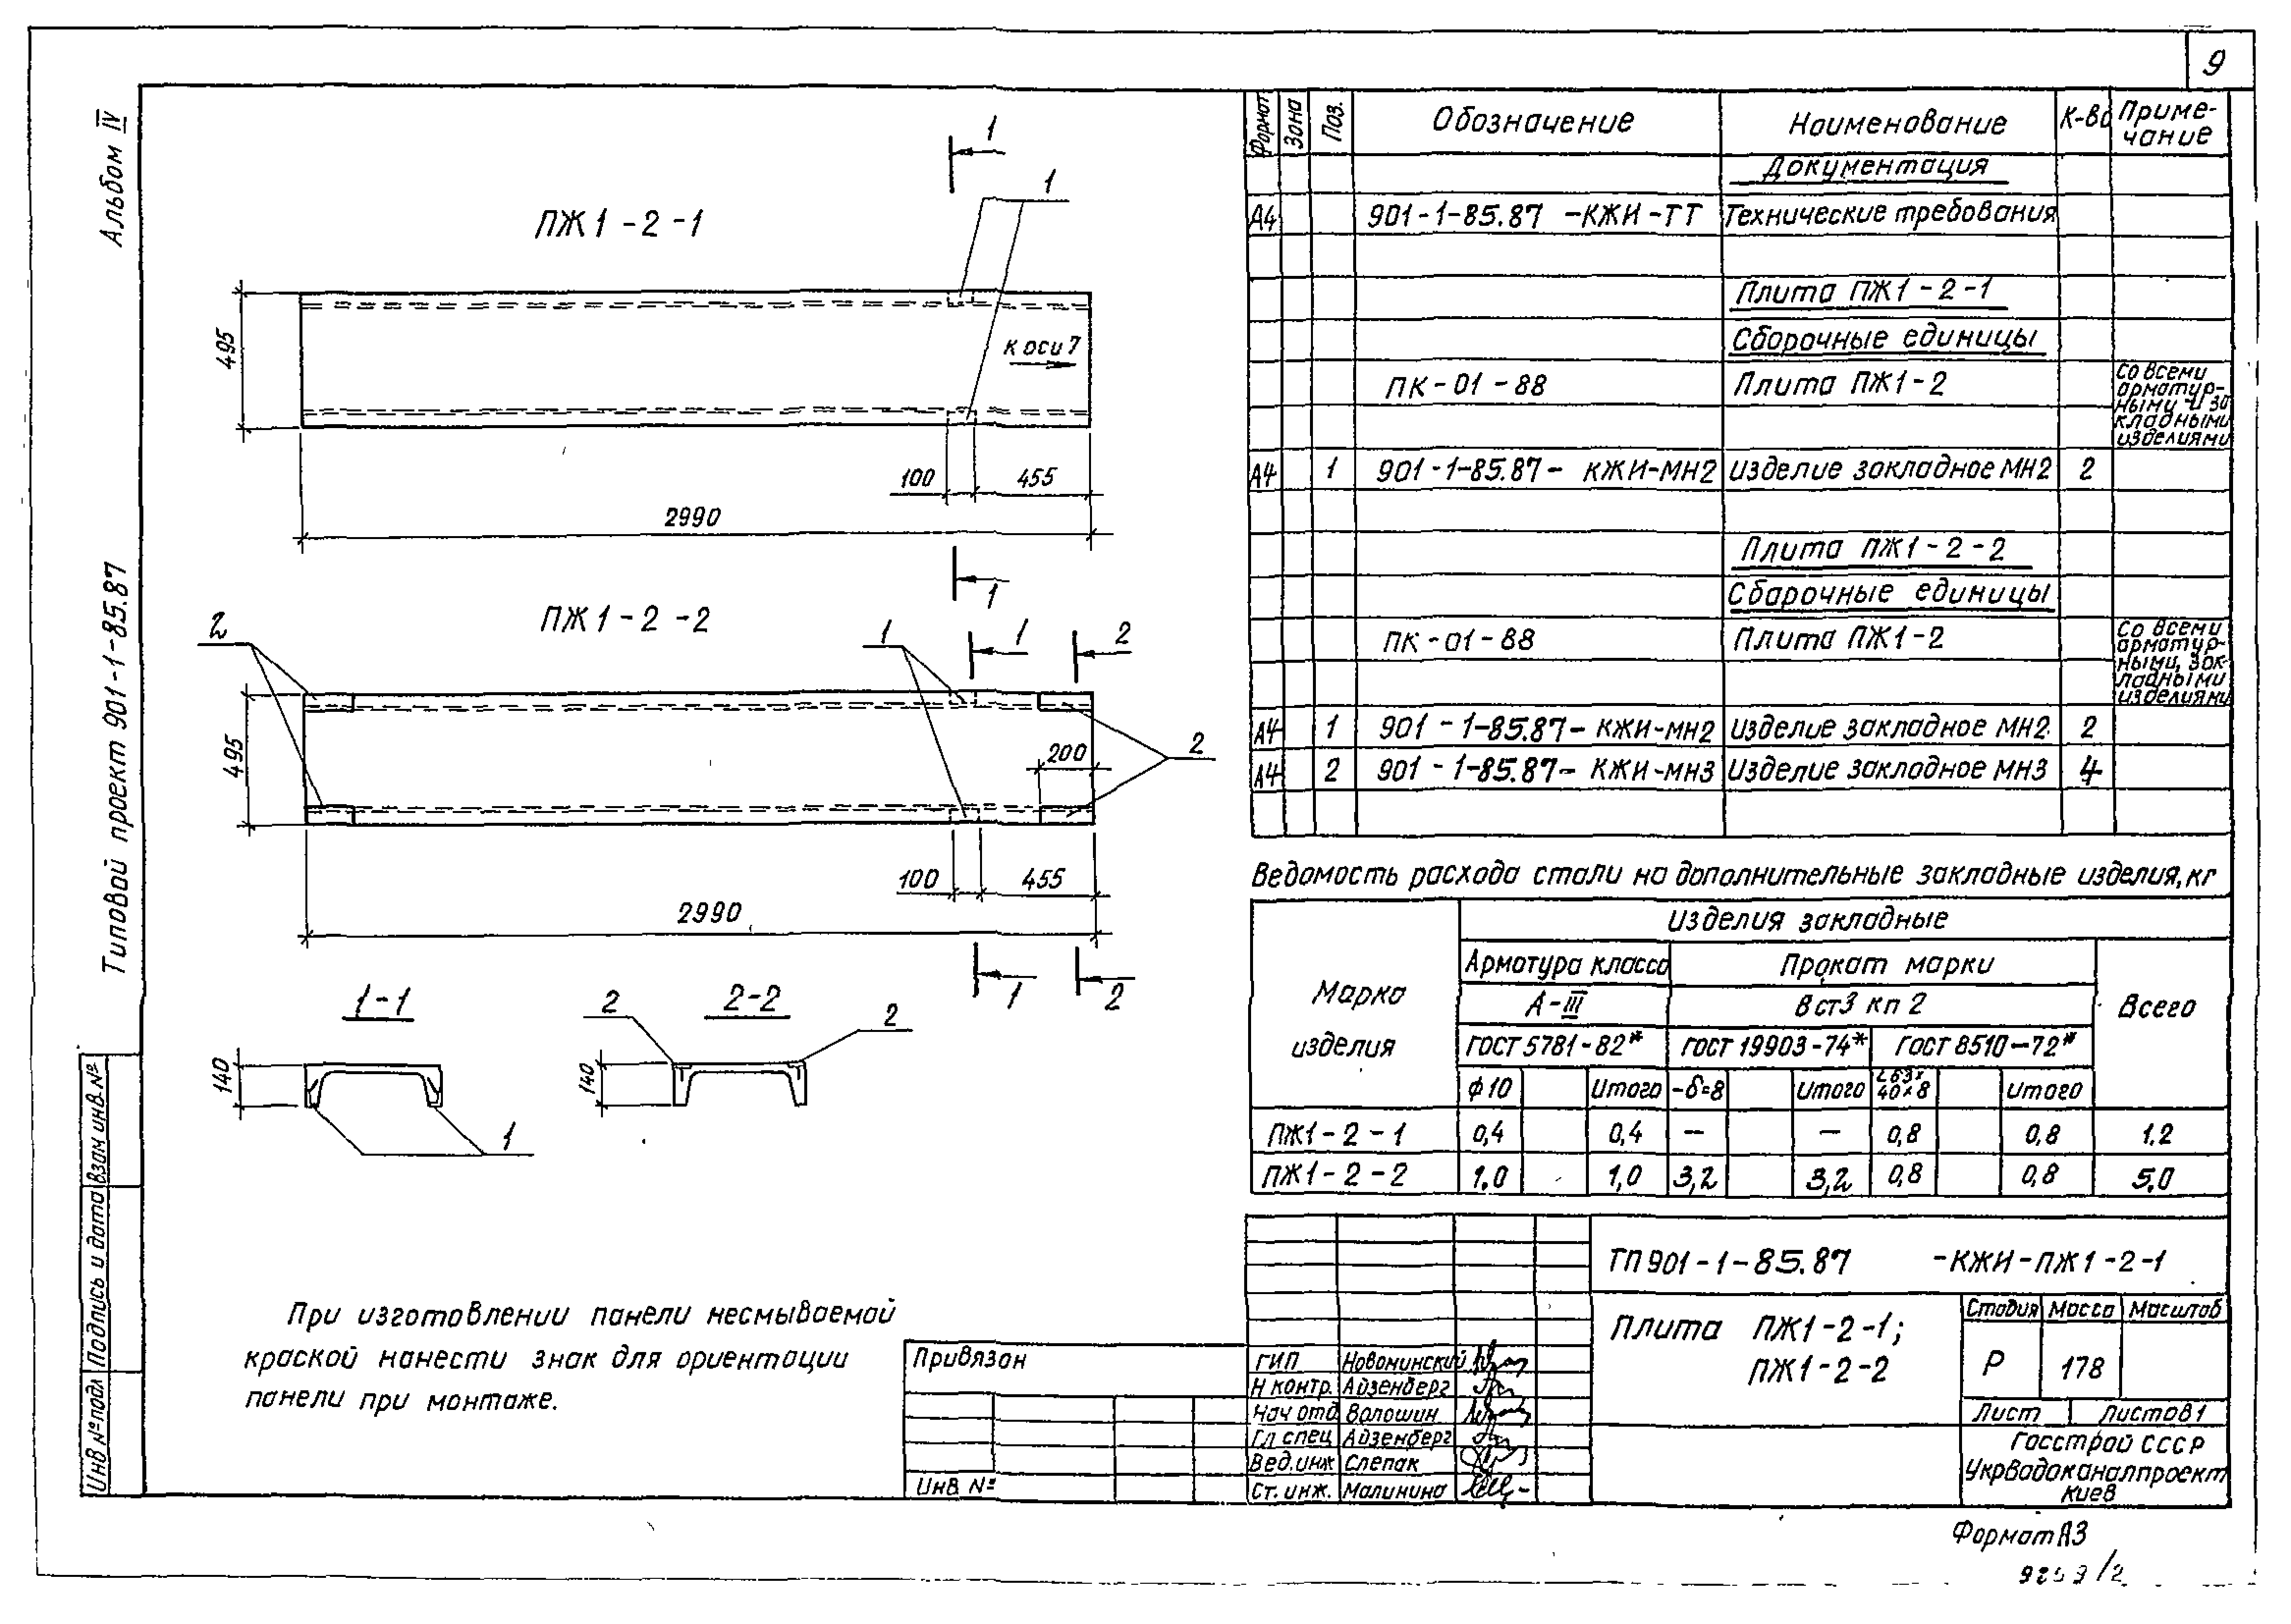 9
Альбом IV
Типовой проект 901-1-85.87
Инв № подл
Подпись и дата
Взам инв. №
ПЖ1-2-1
1
1
495
к оси 7
100
455
2990
1
ПЖ1-2-2
2
1
1
2
495
200
2
100
455
2990
1
2
1-1
140
1
2-2
2
2
140
При изготовлении панели несмываемой
краской нанести знак для ориентации
панели при монтаже.
Формат Зона Поз. Обозначение Наименование К-во Приме-
чание
Документация
А4 901-1-85.87 -КЖИ-ТТ Технические требования
Плита ПЖ1-2-1
Сборочные единицы
ПК-01-88 Плита ПЖ1-2 Со всеми
арматур-
ными и за
кладными
изделиями
А4 1 901-1-85.87- КЖИ-МН2 Изделие закладное МН2 2
Плита ПЖ1-2-2
Сборочные единицы
ПК-01-88 Плита ПЖ1-2 Со всеми
арматур-
ными, зак-
ладными
изделиями
А4 1 901-1-85.87- КЖИ-МН2 Изделие закладное МН2 2
А4 2 901-1-85.87- КЖИ-МН3 Изделие закладное МН3 4
Ведомость расхода стали на дополнительные закладные изделия, кг
Марка
изделия
Изделия закладные
Арматура класса Прокат марки
А-III Вст3 кп 2 Всего
ГОСТ 5781-82* ГОСТ 19903-74* ГОСТ 8510-72*
ф10 Итого -δ=8 Итого L63х
40х8 Итого
ПЖ1-2-1 0,4 0,4 — — 0,8 0,8 1.2
ПЖ1-2-2 1.0 1,0 3,2 3,2 0,8 0,8 5.0
ТП 901-1-85.87 -КЖИ-ПЖ1-2-1
Плита ПЖ1-2-1;
ПЖ1-2-2
Стадия Масса Масштаб
Р 178
Лист Листов 1
Госстрой СССР
Укрводоканалпроект
Киев
Привязан
Инв №
ГИП Новоминский
Н контр. Айзенберг
Нач отд Волошин
Гл спец Айзенберг
Вед. инж Слепак
Ст. инж. Малинина
Формат А3